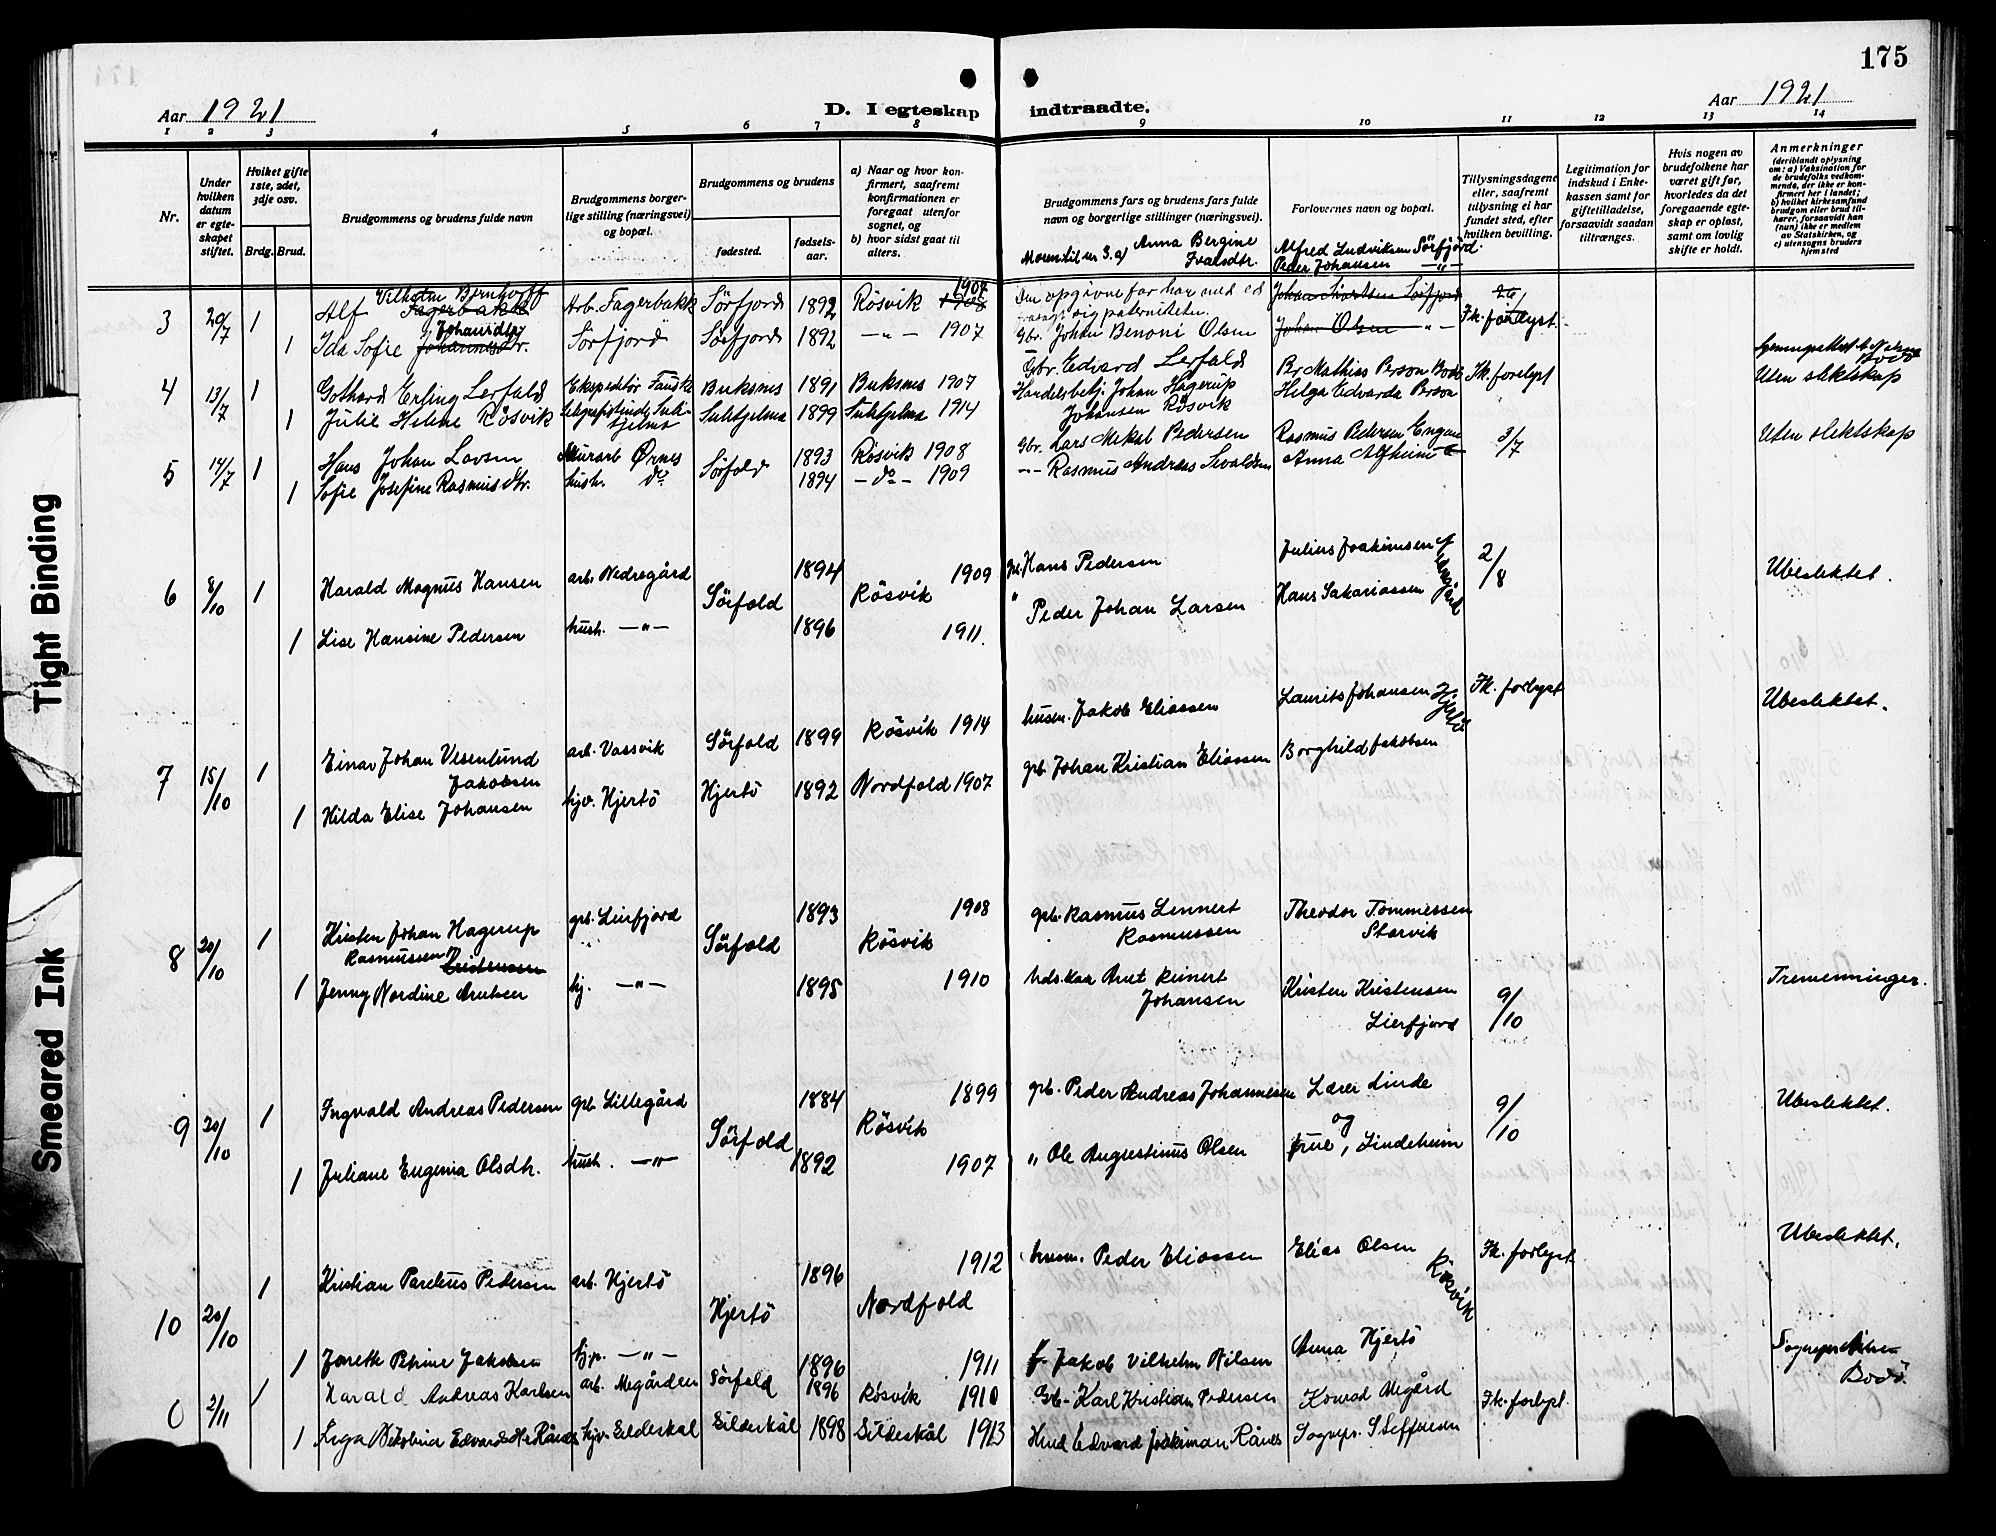 175
Aar 1921
D. I egteskap indtraadte.
Aar 1921
1 2 3 4 5 6 7 8 9 10 11 12 13 14
Nr.
Under hvilken datum er egteskapet stiftet.
Hviket gifte 1ste, 2det, 3dje osv.
Brdg. Brud.
Brudgommens og brudens fulde navn
Brudgommens borgerlige stilling (næringsvei) og bopæl.
Brudgommens og brudens
fødested.
fødselsaar.
a) Naar og hvor konfirmert, saafremt konfirmationen er foregaat utenfor sognet, og
b) hvor sidst gaat til alters.
Brudgommens fars og brudens fars fulde navn og borgerlige stillinger (næringsvei).
Forlovernes navn og bopæl.
Tillysningsdagene eller, saafremt tillysning ei har fundet sted, efter hvilken bevilling.
Legitimation for indskud i Enkekassen samt for giftetilladelse, forsaavidt saadan tiltrænges.
Hvis nogen av brudefolkene har været gift før, hvorledes da det foregaaende egteskap er opløst, samt om lovlig skifte er holdt.
Anmerkninger
(deriblandt oplysning om: a) Vaksination for de brudefolks vedkommende, der ikke er konfirmert her i landet;
b) hvilket kirkesamfund brudgom eller brud tilhører, forsaavidt han (hun) ikke er medlem av Statskirken, og
c) utensogns bruders hjemsted
Moren til nr 3.a) Anna Bergine
Alfred Ludviksen Sörfjord.
Peder Johansen -"-
3 20/7 1 Alf Vilhelm Bernhoff Fagerbakk Arb. Fagerbakk Sörfjord 1892 Rösvik 1907 1908 Johan Sörfjord
1 Ida Sofie Johansdtr Johannesdtr. Sörfjord Sörfjord 1892 -"- 1907 Gbr. Johan Benoni Olsen Johan Olsen -"- Fk. forlyst.
4 13/7 1 Gothard Erling Lerfald Ekspeditör Fauske Buksnes 1891 Buksnes 1907 Gbr. Edvard Lerfald Per Mathias Person Bodö Fk. forlyst Uten slektskap
1 Julie Helene Rösvik Sulitjelma Sulitjelma 1899 Sulitjelma 1914 Handelsbetj. Johan Hagerup Johansen Rösvik Helga Edvarda Person
5 14/7 1 Hans Johan Larsen Murarb Örnes Sörfold 1893 Rösvik 1908 Gbr. Lars Mikal Pedersen Rasmus Pedersen Engan 3/7 Uten slektskap
1 Sofie Josefine Rasmusdtr. hush. do 1894 -do- 1909 -"- Rasmus Andreas Sivaldsen Anna Alfheim
6 8/10 1 Harald Magnus Hansen arb. Nedregård Sörfold 1894 Rösvik 1909 gb. Hans Pedersen Julius Joakimsen 2/8 Ubeslektet.
1 Lise Hansine Pedersen hush. -"- 1896 1911. " Peder Johan Larsen Hans Sakariassen
7 15/10 1 Einar Johan Vesenlund Jakobsen arb. Vassvik Sörfold 1899 Rösvik 1914 husm. Jakob Eliassen Laurits Johansen Hjertö Fk. forlyst Ubeslektet.
1 Hilda Elise Johansen hjv. Hjertö Hjertö 1892 Nordfold 1907 gb. Johan Kristian Eliassen Borghild Jakobsen
8 20/10 1 Kristen Johan Hagerup Rasmussen Kristensen gb. Lierfjord Sörfold 1893 Rösvik 1908 gb. Rasmus Lennert Rasmussen Theodor Tommessen Storvik
1 Jenny Nordine Arntsen hj. -"- 1895 1910 hds.kar Arnt Reinert Johansen Kristen Kristensen Lierfjord 9/10 Tremenninger.
9 20/10 1 Ingvald Andreas Pedersen gb. Lillegård Sörfold 1884 Rösvik 1899 gb. Peder Andreas Johannesen Lærer Linde og 9/10 Ubeslektet.
1 Juliane Eugenia Olsdtr. hush. -"- 1892 1907 " Ole Augustinus Olsen frue, Lindeheim
10 20/10 1 Kristian Parelius Pedersen arb. Hjertö Hjertö 1896 Nordfold 1912 husm. Peder Eliassen Elias Olsen Rösvik Fk. forlyst Ubeslektet.
1 Jorette Petrine Jakobsen hjv. -"- 1896 1911 f. Jakob Vilhelm Nilsen Anna Hjertö
2/11 1 Harald Andreas Karlsen arb. Megården Sörfold 1896 Rösvik 1910 Gb. Karl Kristian Pedersen Konrad Megård Fk. forlyst. Bodö.
1 Edvards Rånes hjv. Gildeskål Gildeskål 1898 Gildeskål 1913 Edvard Joakiman Rånes Sogнepr. Steffensen
Tight Binding
Smeared Ink